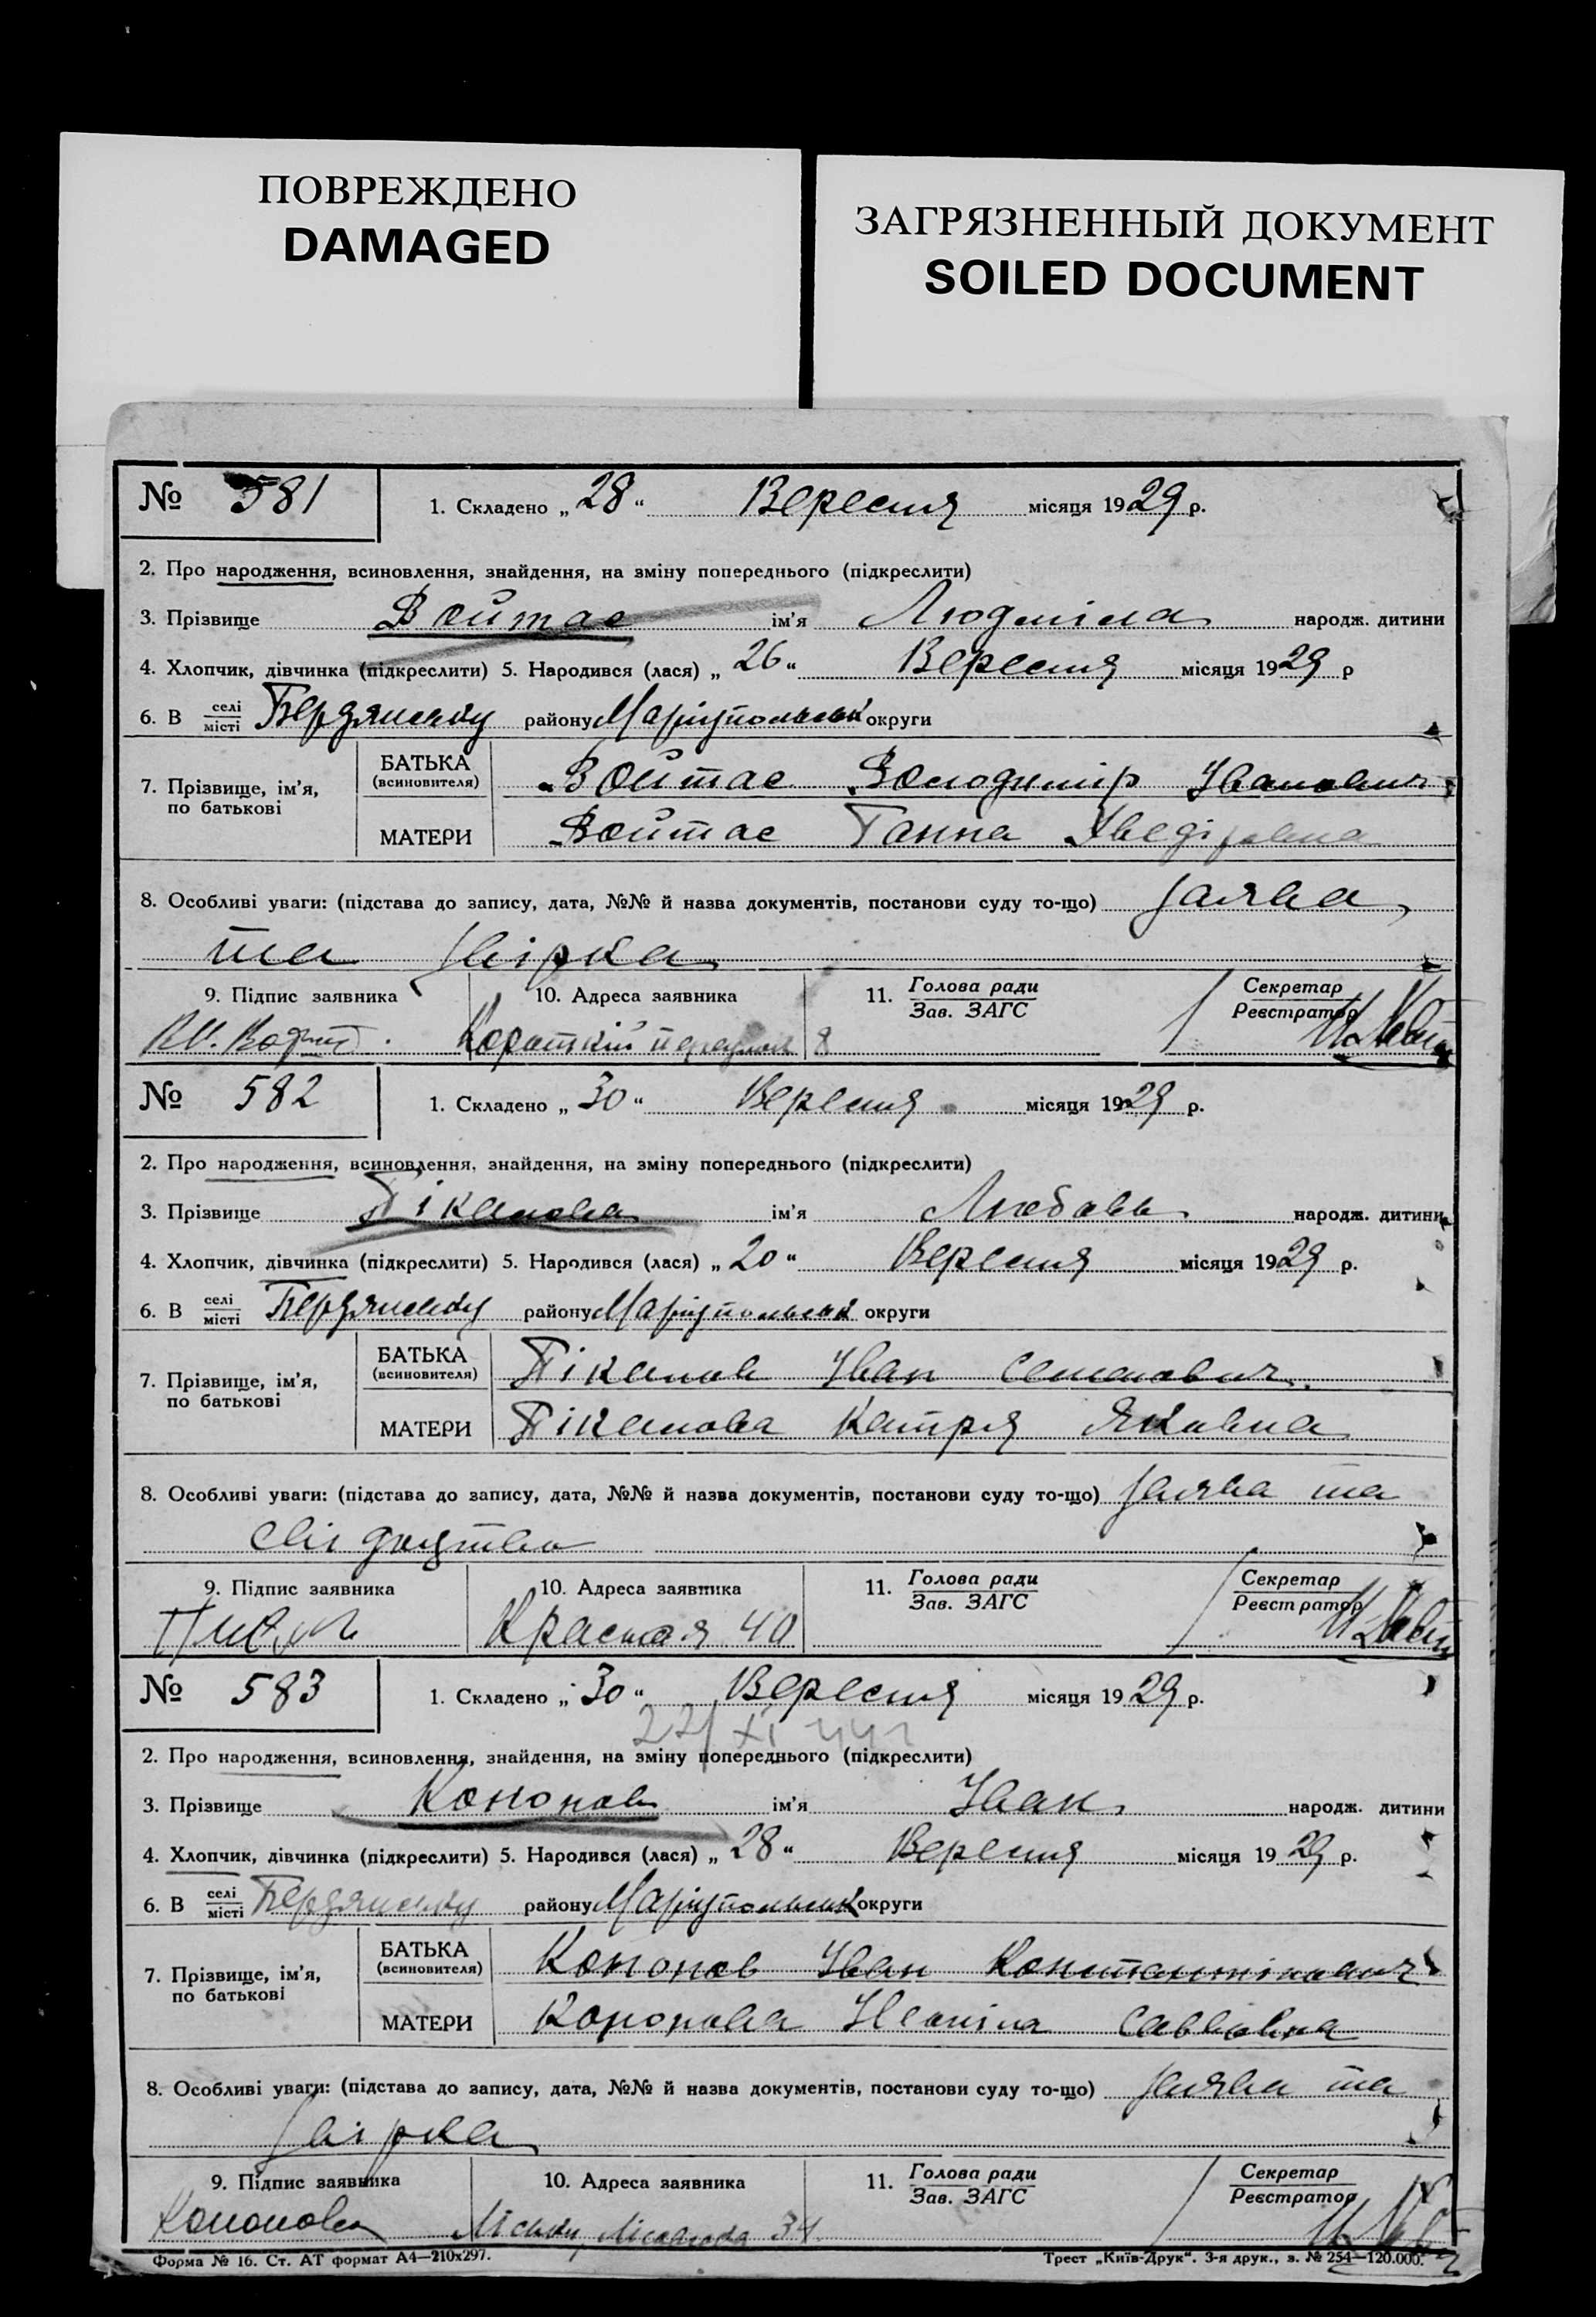 ПОВРЕЖДЕНО
DAMAGED
ЗАГРЯЗНЕННЫЙ ДОКУМЕНТ
SOILED DOCUMENT
№ 581 1. Складено „28“ Вересня місяця 1929 р.
2. Про народження, всиновлення, знайдення, на зміну попереднього (підкреслити)
3. Прізвище Войтас ім'я Людміла народж. дитини
4. Хлопчик, дівчинка (підкреслити) 5. Народився (лася) „26“ Вересня місяця 1929 р
6. В селі місті Бердянську району Маріупольськ округи
7. Прізвище, ім'я, по батькові
БАТЬКА (всиновителя) Войтас Володимір Іванович
МАТЕРИ Войтас Ганна
8. Особливі уваги: (підстава до запису, дата, №№ й назва документів, постанови суду то-що) заява
та звірка
9. Підпис заявника 10. Адреса заявника 11. Голова ради Зав. ЗАГС Секретар Реєстратор
Короткій переулок 8
№ 582 1. Складено „30“ Вересня місяця 1929 р.
2. Про народження, всиновлення, знайдення, на зміну попереднього (підкреслити)
3. Прізвище Піканова ім'я Любовь народж. дитини
4. Хлопчик, дівчинка (підкреслити) 5. Народився (лася) „20“ Вересня місяця 1929 р.
6. В селі місті Бердянську району Маріупольськ округи
7. Прізвище, ім'я, по батькові
БАТЬКА (всиновителя) Піканов Іван Семенович
МАТЕРИ Піканова Катря Яковна
8. Особливі уваги: (підстава до запису, дата, №№ й назва документів, постанови суду то-що) заява та
свідоцтво
9. Підпис заявника 10. Адреса заявника 11. Голова ради Зав. ЗАГС Секретар Реєстратор
Красная 40
№ 583 1. Складено „30“ Вересня місяця 1929 р.
2. Про народження, всиновлення, знайдення, на зміну попереднього (підкреслити)
3. Прізвище Кононов ім'я Іван народж. дитини
4. Хлопчик, дівчинка (підкреслити) 5. Народився (лася) „28“ Вересня місяця 1929 р.
6. В селі місті Бердянську району Маріупольськ округи
7. Прізвище, ім'я, по батькові
БАТЬКА (всиновителя) Кононов Іван Константінович
МАТЕРИ Кононова Неоніла Саввовна
8. Особливі уваги: (підстава до запису, дата, №№ й назва документів, постанови суду то-що) заява та
звірка
9. Підпис заявника 10. Адреса заявника 11. Голова ради Зав. ЗАГС Секретар Реєстратор
Кононова 34
Форма № 16. Ст. АТ формат А4—210х297. Трест „Київ-Друк“. 3-я друк., з. № 254—120.000.